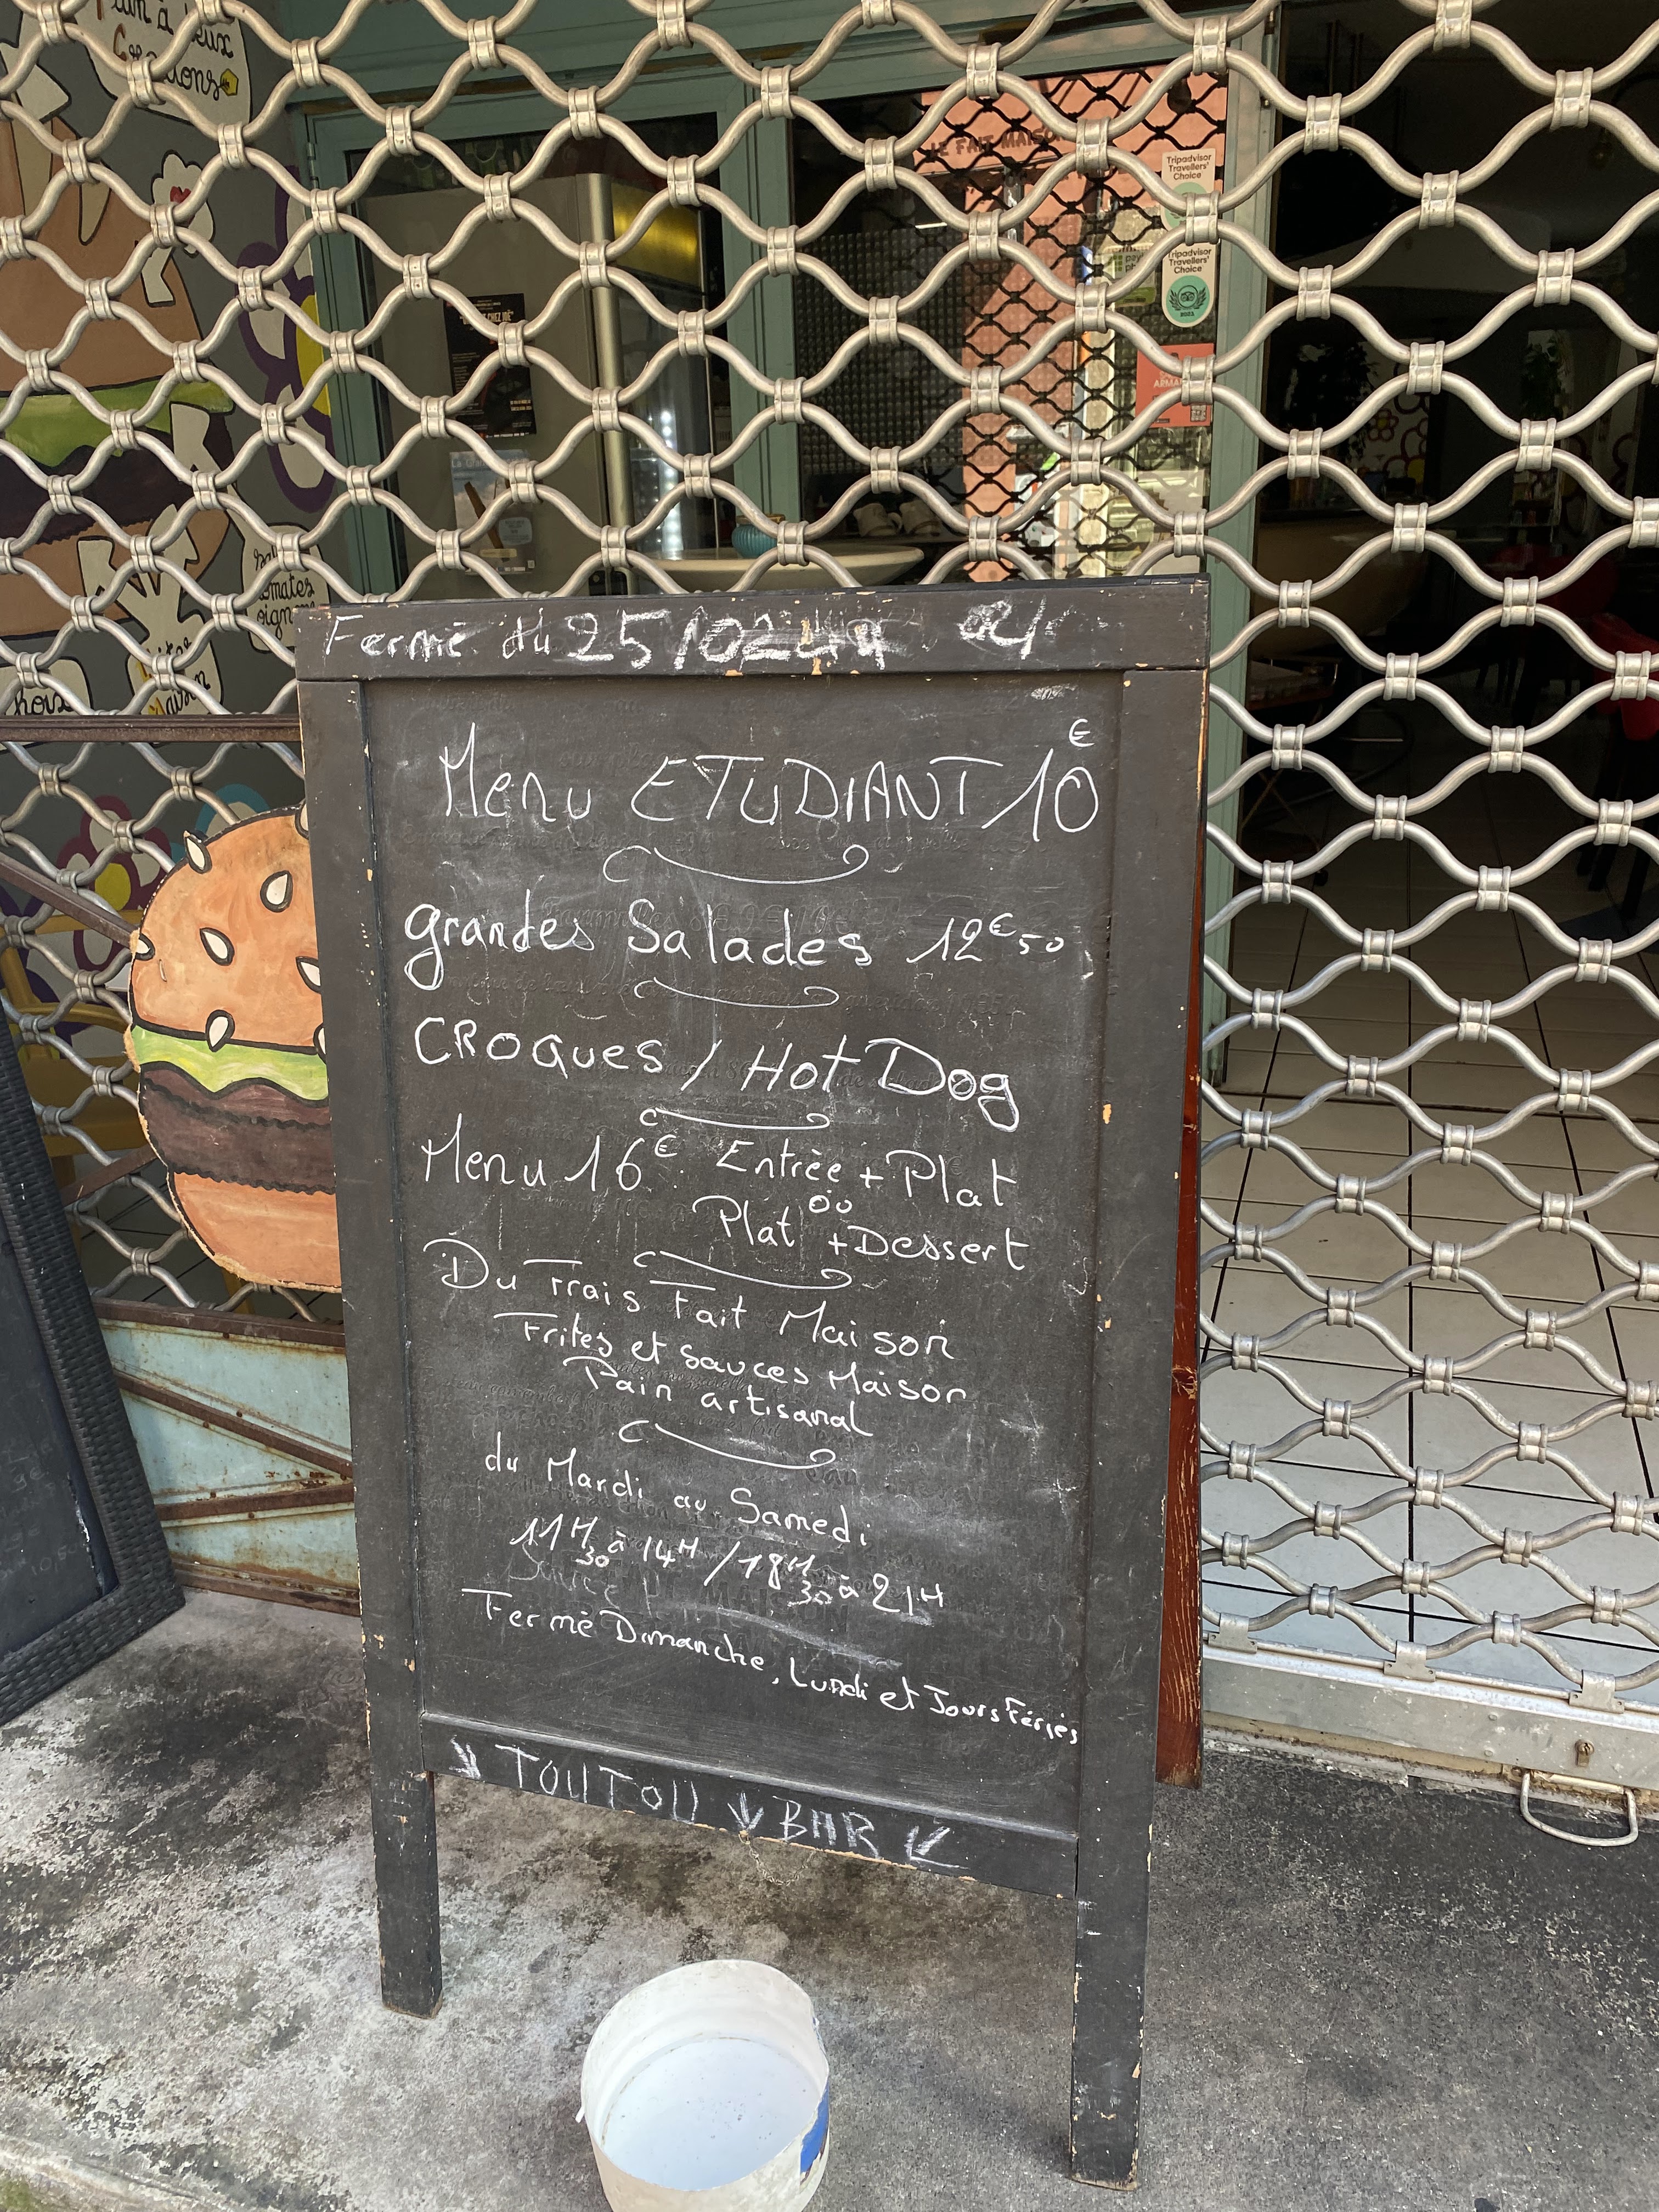 Pain à
Creations
LE FAIT MAISON
Tripadvisor
Travellers'
Choice
Tripadvisor
Travellers'
Choice
CHEZ JOÉ"
tomates
oignons
maison
Fermé du 25/10
Menu ETUDIANT 10€
grandes Salades 12€50
CROQUES / Hot Dog
Menu 16€ Entrée + Plat
ou
Plat + Dessert
Du Frais Fait Maison
Frites et sauces Maison
Pain artisanal
du Mardi au Samedi
11H30 à 14H / 18H30 à 21H
Fermé Dimanche, Lundi et Jours Fériés
↓ TOUTOU ↓ BAR ↙